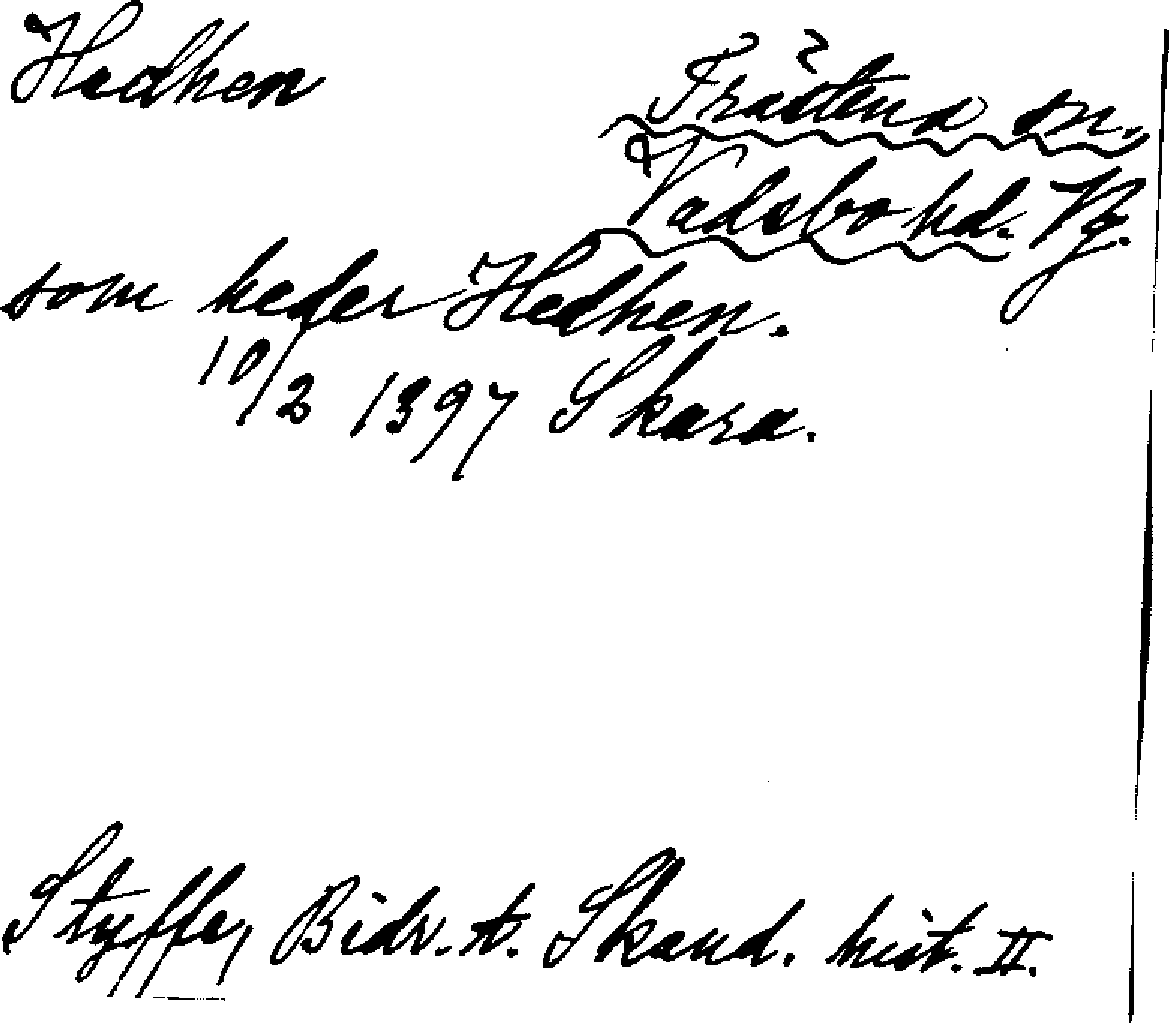 Hedhen
? Trästena sn.
Vadsbo hd. Vg.
som heder Hedhen.
10/2 1397 Skara.
Styffe, Bidr. t. Skand. hist. II.